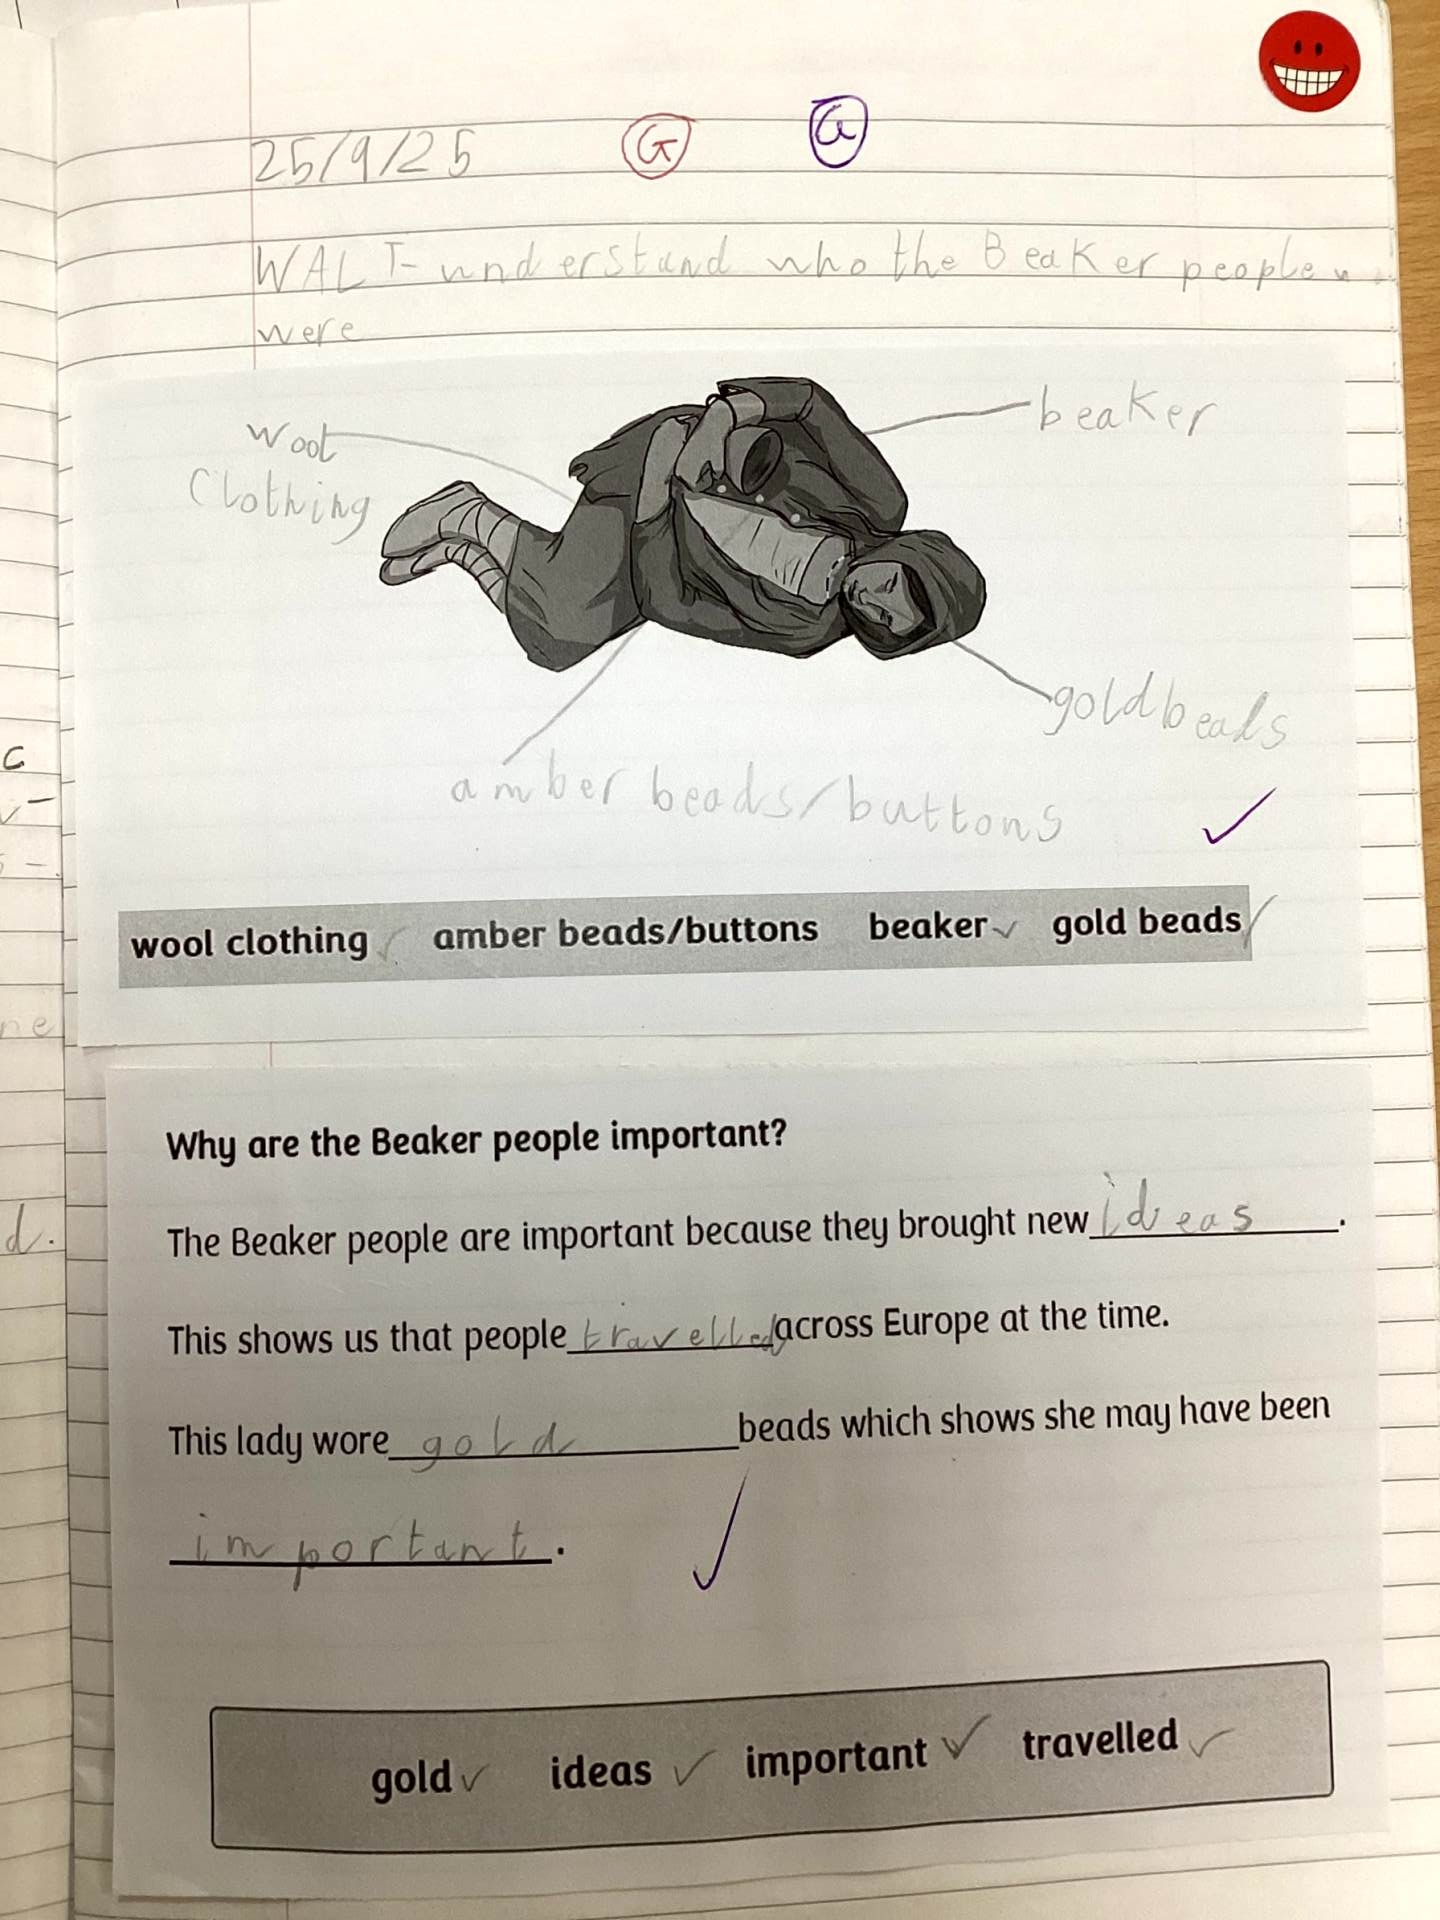 25/9/25 G G
WALT- understand who the Beaker people w
were
wool
clothing
beaker
gold beads
amber beads/buttons
wool clothing amber beads/buttons beaker gold beads
Why are the Beaker people important?
The Beaker people are important because they brought new ideas.
This shows us that people travelled across Europe at the time.
This lady wore gold beads which shows she may have been
important.
gold ideas important travelled
c
ne
d.